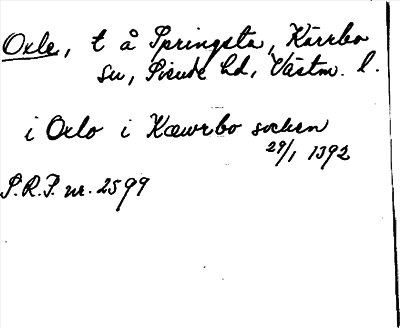 Oxle, t å Springsta, Kärrbo
sn, Siende hd, Västm. l.
i Oxlo i Kæwrbo sochen
29/1 1392
S.R.P. nr. 2599